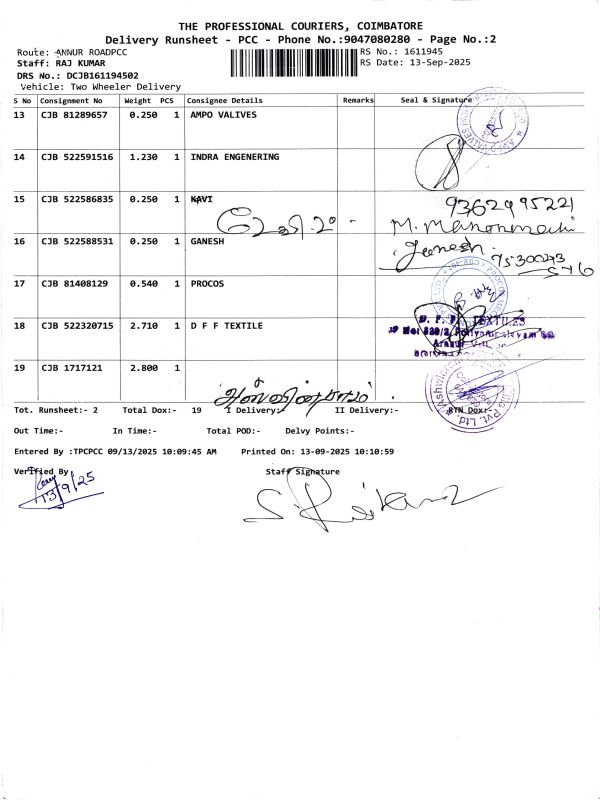 THE PROFESSIONAL COURIERS, COIMBATORE
Delivery Runsheet - PCC - Phone No.:9047080280 - Page No.:2
Route: ANNUR ROADPCC RS No.: 1611945
Staff: RAJ KUMAR RS Date: 13-Sep-2025
DRS No.: DCJB161194502
Vehicle: Two Wheeler Delivery
S No Consignment No Weight PCS Consignee Details Remarks Seal & Signature
13 CJB 81289657 0.250 1 AMPO VALIVES
14 CJB 522591516 1.230 1 INDRA ENGENERING
15 CJB 522586835 0.250 1 KAVI
M. Manonmani
16 CJB 522588531 0.250 1 GANESH Ganesh
17 CJB 81408129 0.540 1 PROCOS
18 CJB 522320715 2.710 1 D F F TEXTILE
19 CJB 1717121 2.800 1
Tot. Runsheet:- 2 Total Dox:- 19 I Delivery:- II Delivery:- RTN Dox:-
Out Time:- In Time:- Total POD:- Delvy Points:-
Entered By :TPCPCC 09/13/2025 10:09:45 AM Printed On: 13-09-2025 10:10:59
Verified By Staff Signature
13/9/25